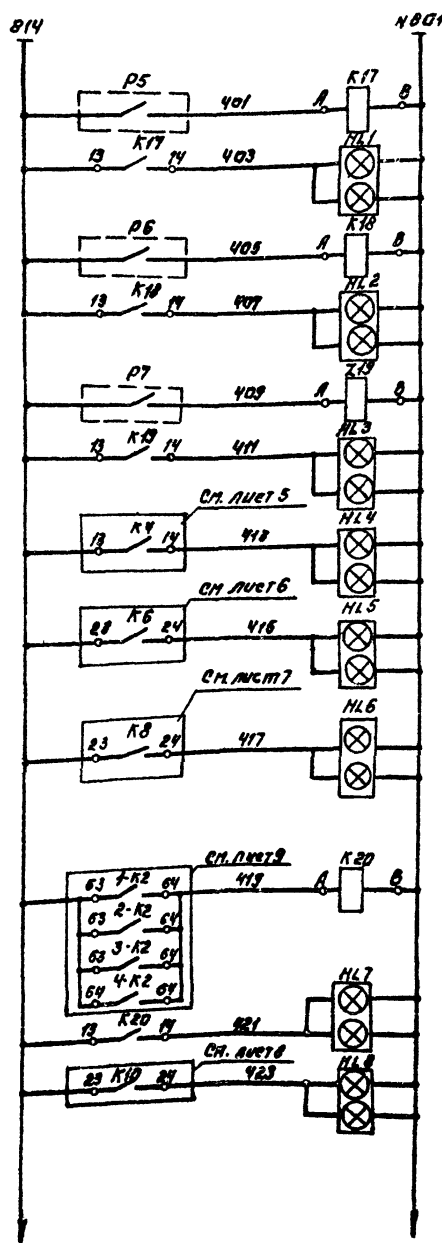 814 N801
P5 401 A K17 B
13 K17 14 403 HL1
P6 405 A K18 B
13 K18 14 407 HL2
P7 409 A Z19 B
13 K19 14 411 HL3
См. лист 5
13 K4 14 413 HL4
См. лист 6
23 K6 24 415 HL5
См. лист 7
23 K8 24 417 HL6
См. лист 9
63 1-K2 64 419 A K20 B
63 2-K2 64
63 3-K2 64
64 4-K2 64
13 K20 14 421 HL7
См. лист 8
23 K10 24 423 HL8